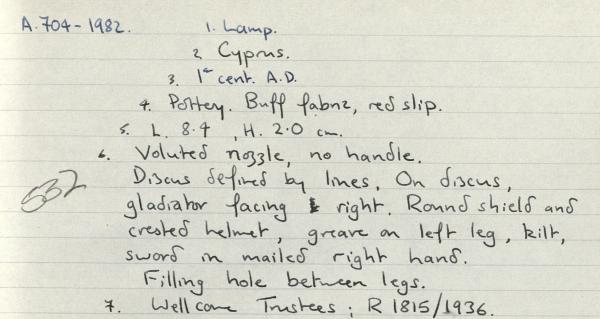 A.704-1982. 1. Lamp.
2 Cyprus.
3. 1st cent. A.D.
4. Pottery. Buff fabric, red slip.
5. L. 8.4, H. 2.0 cm.
6. Voluted nozzle, no handle.
Discus defined by lines. On discus,
gladiator facing right. Round shield and
crested helmet, greave on left leg, kilt,
sword in mailed right hand.
Filling hole between legs.
7. Wellcome Trustees; R 1815/1936.
532